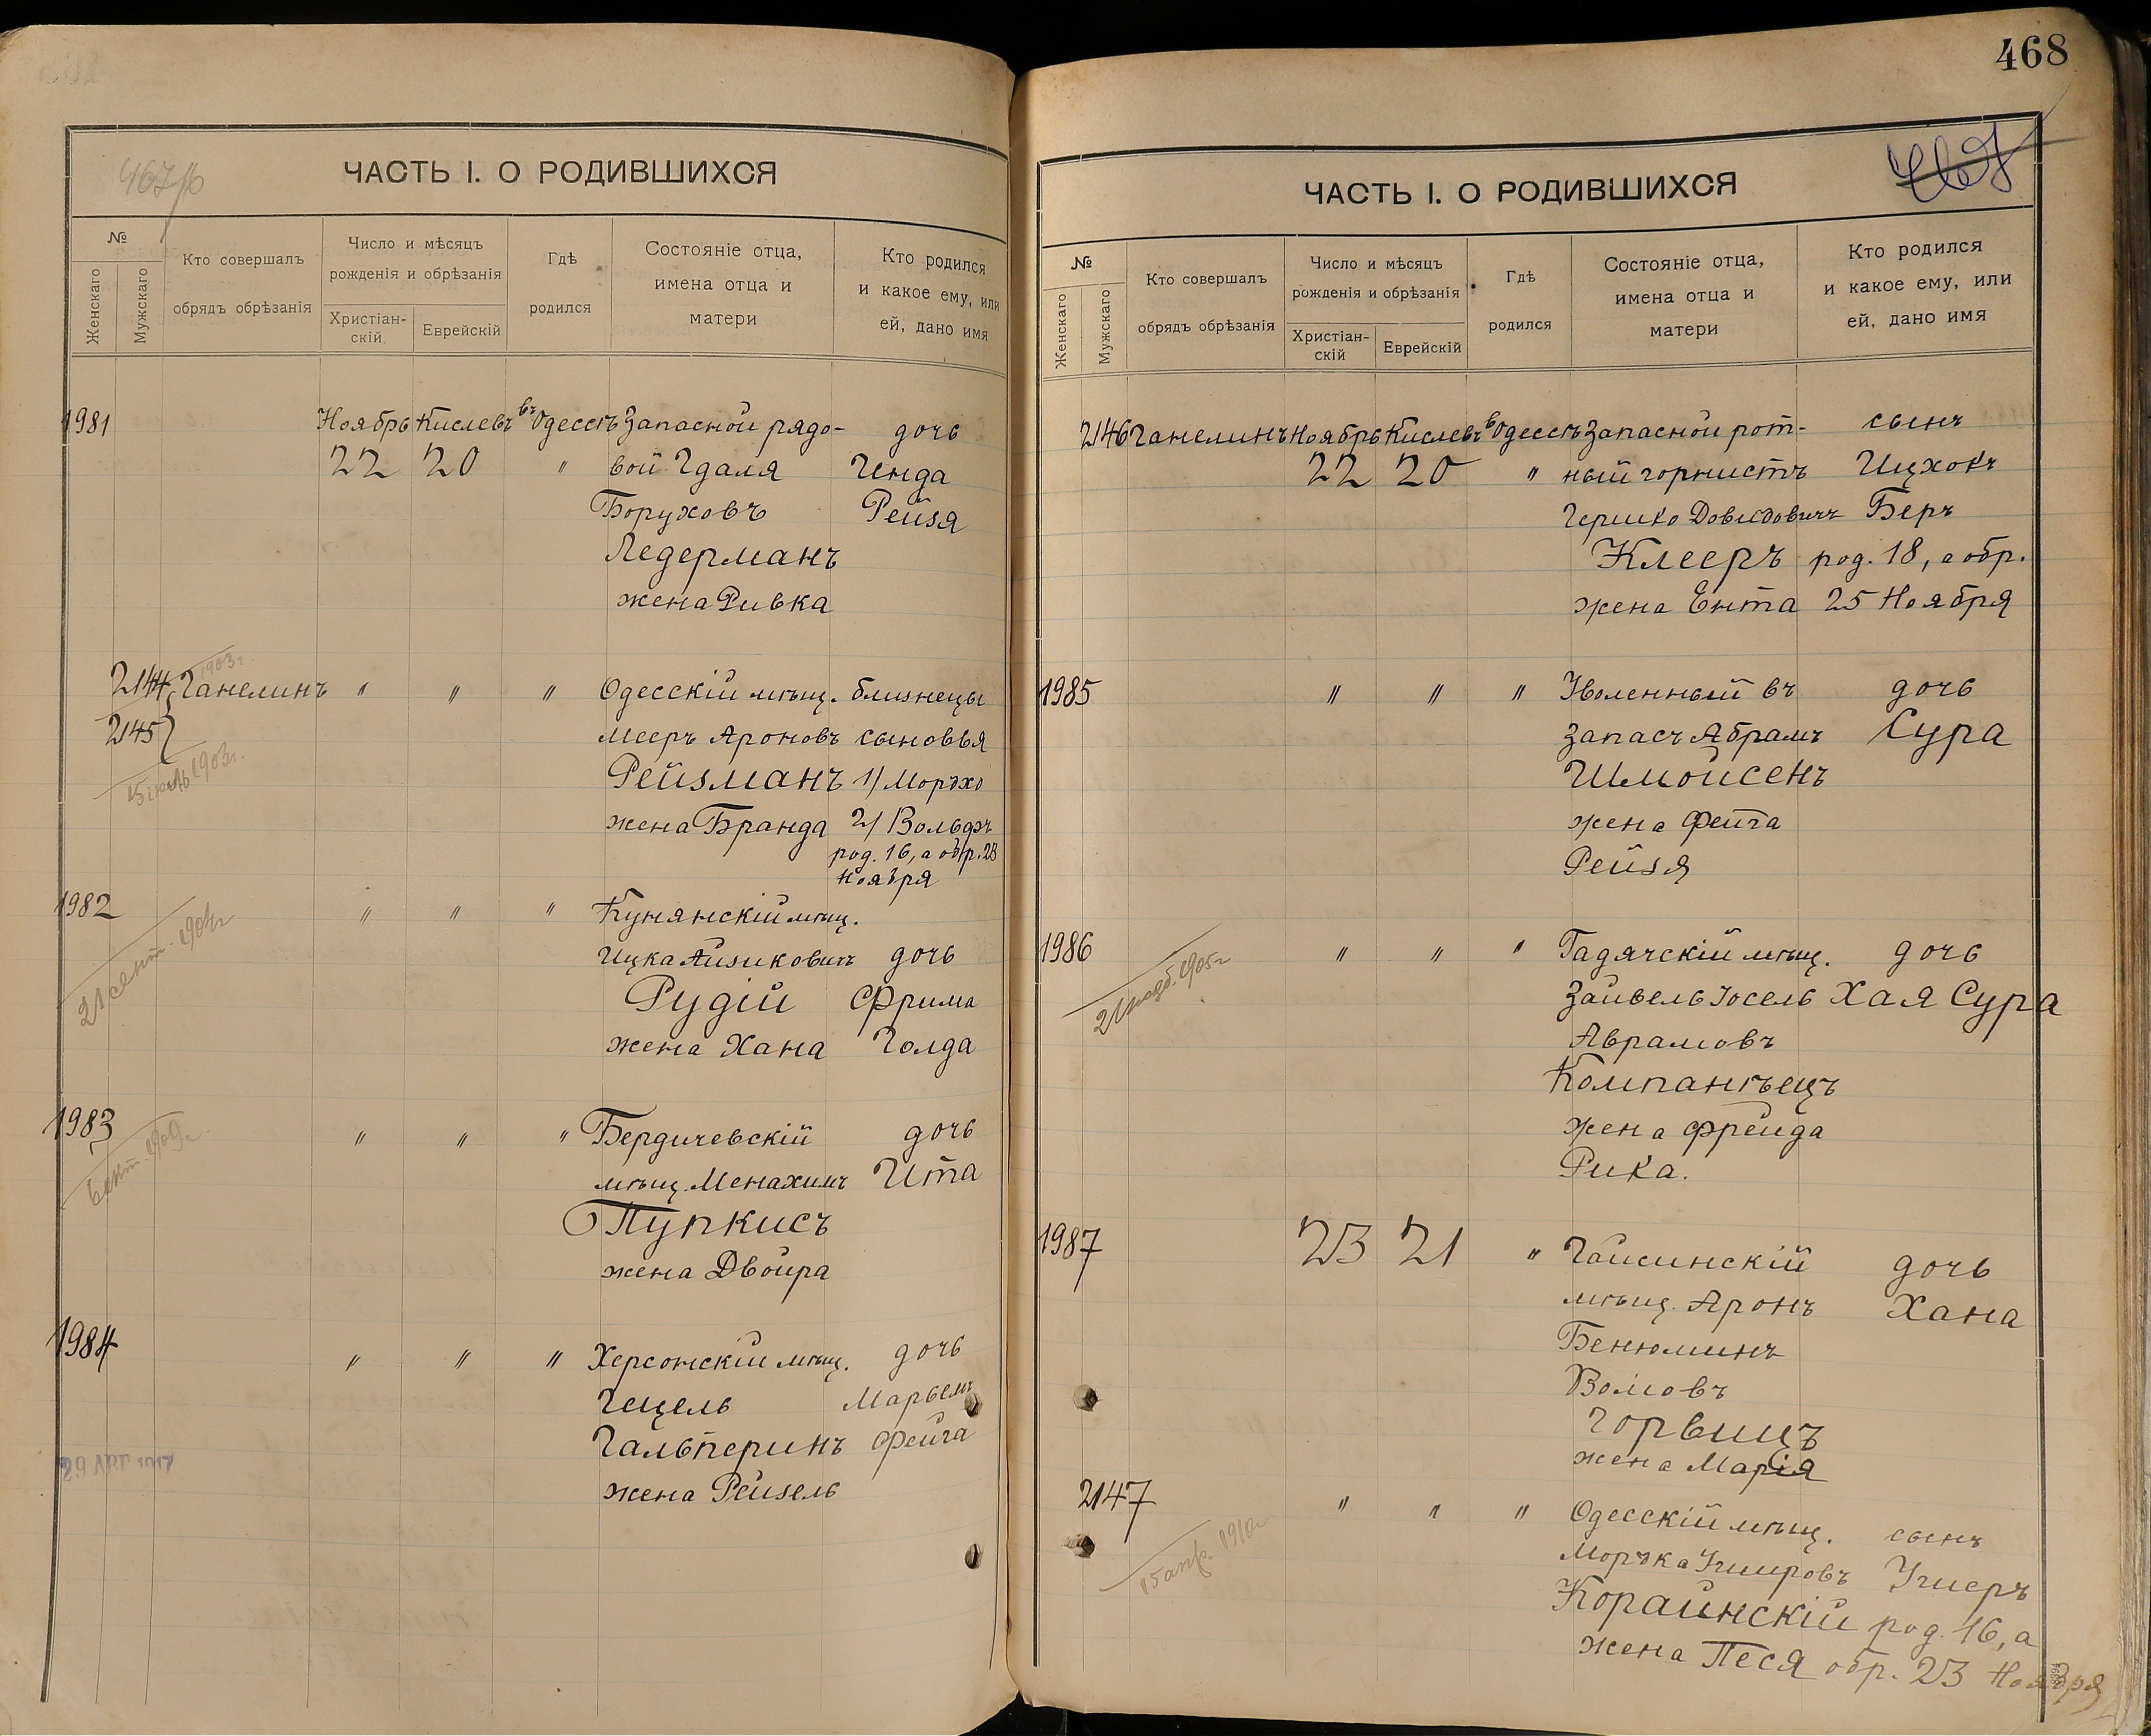 ЧАСТЬ I. О РОДИВШИХСЯ
№
Женскаго
Мужскаго
Кто совершалъ
обрядъ обрѣзанія
Число и мѣсяцъ
рожденія и обрѣзанія
Христіан-
скій
Еврейскій
Гдѣ
родился
Состояніе отца,
имена отца и
матери
Кто родился
и какое ему, или
ей, дано имя
1981 Ноябрь Кислевъ въ Одессѣ Запасной рядо- дочь
22 20 " вой Гдаля Гинда
Боруховъ Рейзя
Ледерманъ
жена Ривка
2144 Ганелинъ " " " Одесскій мѣщ. близнецы
2145 Мееръ Ароновъ сыновья
Рейзманъ 1/ Мордхо
жена Бранда 2/ Вольфъ
род. 16, а обр. 23
Ноября
15 1903г.
1982 " " " Кунянскій мѣщ.
Ицка Айзиковичъ дочь
Рудій Фрима
жена Хана Голда
21 сент. 1904г
1983 " " " Бердичевскій дочь
мѣщ. Менахимъ Ита
Пупкисъ
жена Двойра
6 окт. 1909г.
1984 " " " Херсонскій мѣщ. дочь
Гецель Марьемъ
Гальперинъ Фейга
жена Рейзель
29 АВГ 1917
468
ЧАСТЬ I. О РОДИВШИХСЯ
№
Женскаго
Мужскаго
Кто совершалъ
обрядъ обрѣзанія
Число и мѣсяцъ
рожденія и обрѣзанія
Христіан-
скій
Еврейскій
Гдѣ
родился
Состояніе отца,
имена отца и
матери
Кто родился
и какое ему, или
ей, дано имя
2146 Ганелинъ Ноябрь Кислевъ въ Одессѣ Запасной рот- сынъ
22 20 " ный горнистъ Ицхокъ
Гершко Довидовичъ Беръ
Клееръ род. 18, а обр.
жена Ента 25 Ноября
1985 " " " Уволенный въ дочь
запасъ Абрамъ Сура
Шмойсенъ
жена Фейга
Рейзя
1986 " " " Гадячскій мѣщ. дочь
Зайвель Іосель Хая Сура
Аврамовъ
Компанѣецъ
жена Фрейда
Рика.
21 1905г
1987 23 21 " Гайсинскій дочь
мѣщ. Аронъ Хана
Бенюминъ
Волковъ
Горвицъ
жена Марія
2147 " " " Одесскій мѣщ. сынъ
Мордка Ушировъ Ушеръ
Корайнскій род. 16, а
жена Песя обр. 23 Ноября
15 апр. 1910г